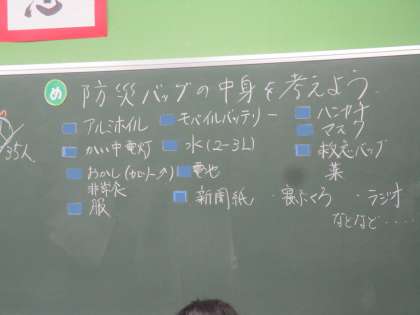 め 防災バッグの中身を考えよう.
アルミホイル モバイルバッテリー ハンカチ
マスク
35人 かい中電灯 水(2-3L) 救急バッグ
薬
おかし(カロリータ) 電池
非常食
服 新聞紙 ・寝ぶくろ ・ラジオ
などなど....